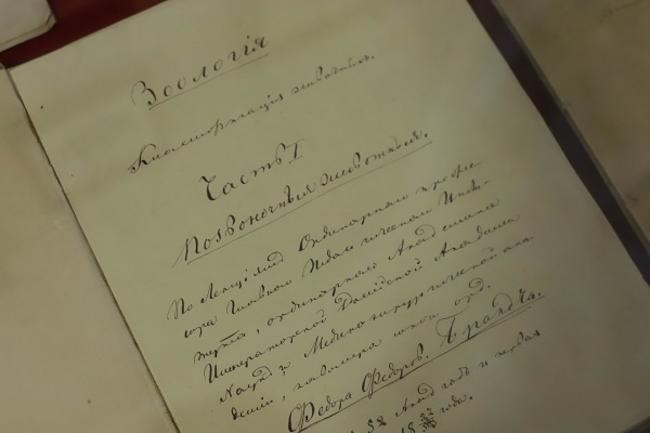 Зоологія
Классификація животныхъ.
Часть I
Позвоночныя животныя.
По Лекціямъ Ординарнаго профес
сора Главнаго Педагогическаго Инсти-
тута, ординарнаго Академика
Императорской Академіи
Наукъ и Медико-хирургической ака
деміи, кавалера орд.
Федора Федоров. Брандта.
годъ и первая
года.